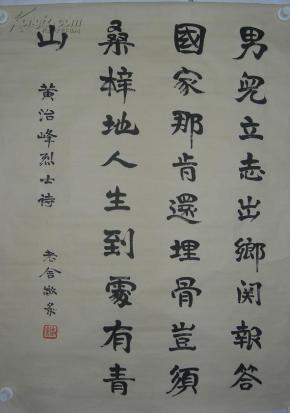 男兒立志出鄉関報答
國家那肯還埋骨豈須
桑梓地人生到處有青
山
黄治峰烈士詩
老舍敬录